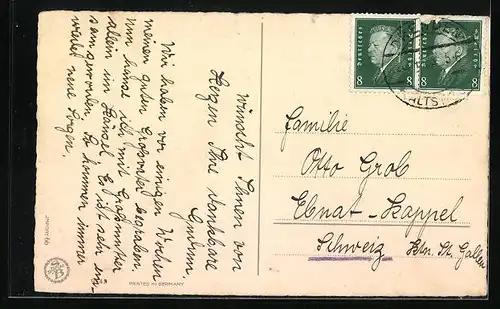 Wir haben vor einigen Wochen
meinen guten Großvater begraben,
nun sind ich mit Großmutter
allein im Häusel. Es ist sehr ein-
sam geworden. So kommen immer
wieder neue Sorgen.
wünscht Ihnen von
Herzen Ihre dankbare
Familie
Otto Grob
Ebnat-Kappel
Schweiz Ktn. St. Gallen
Deutsches Reich
8 8
8 8
PRINTED IN GERMANY